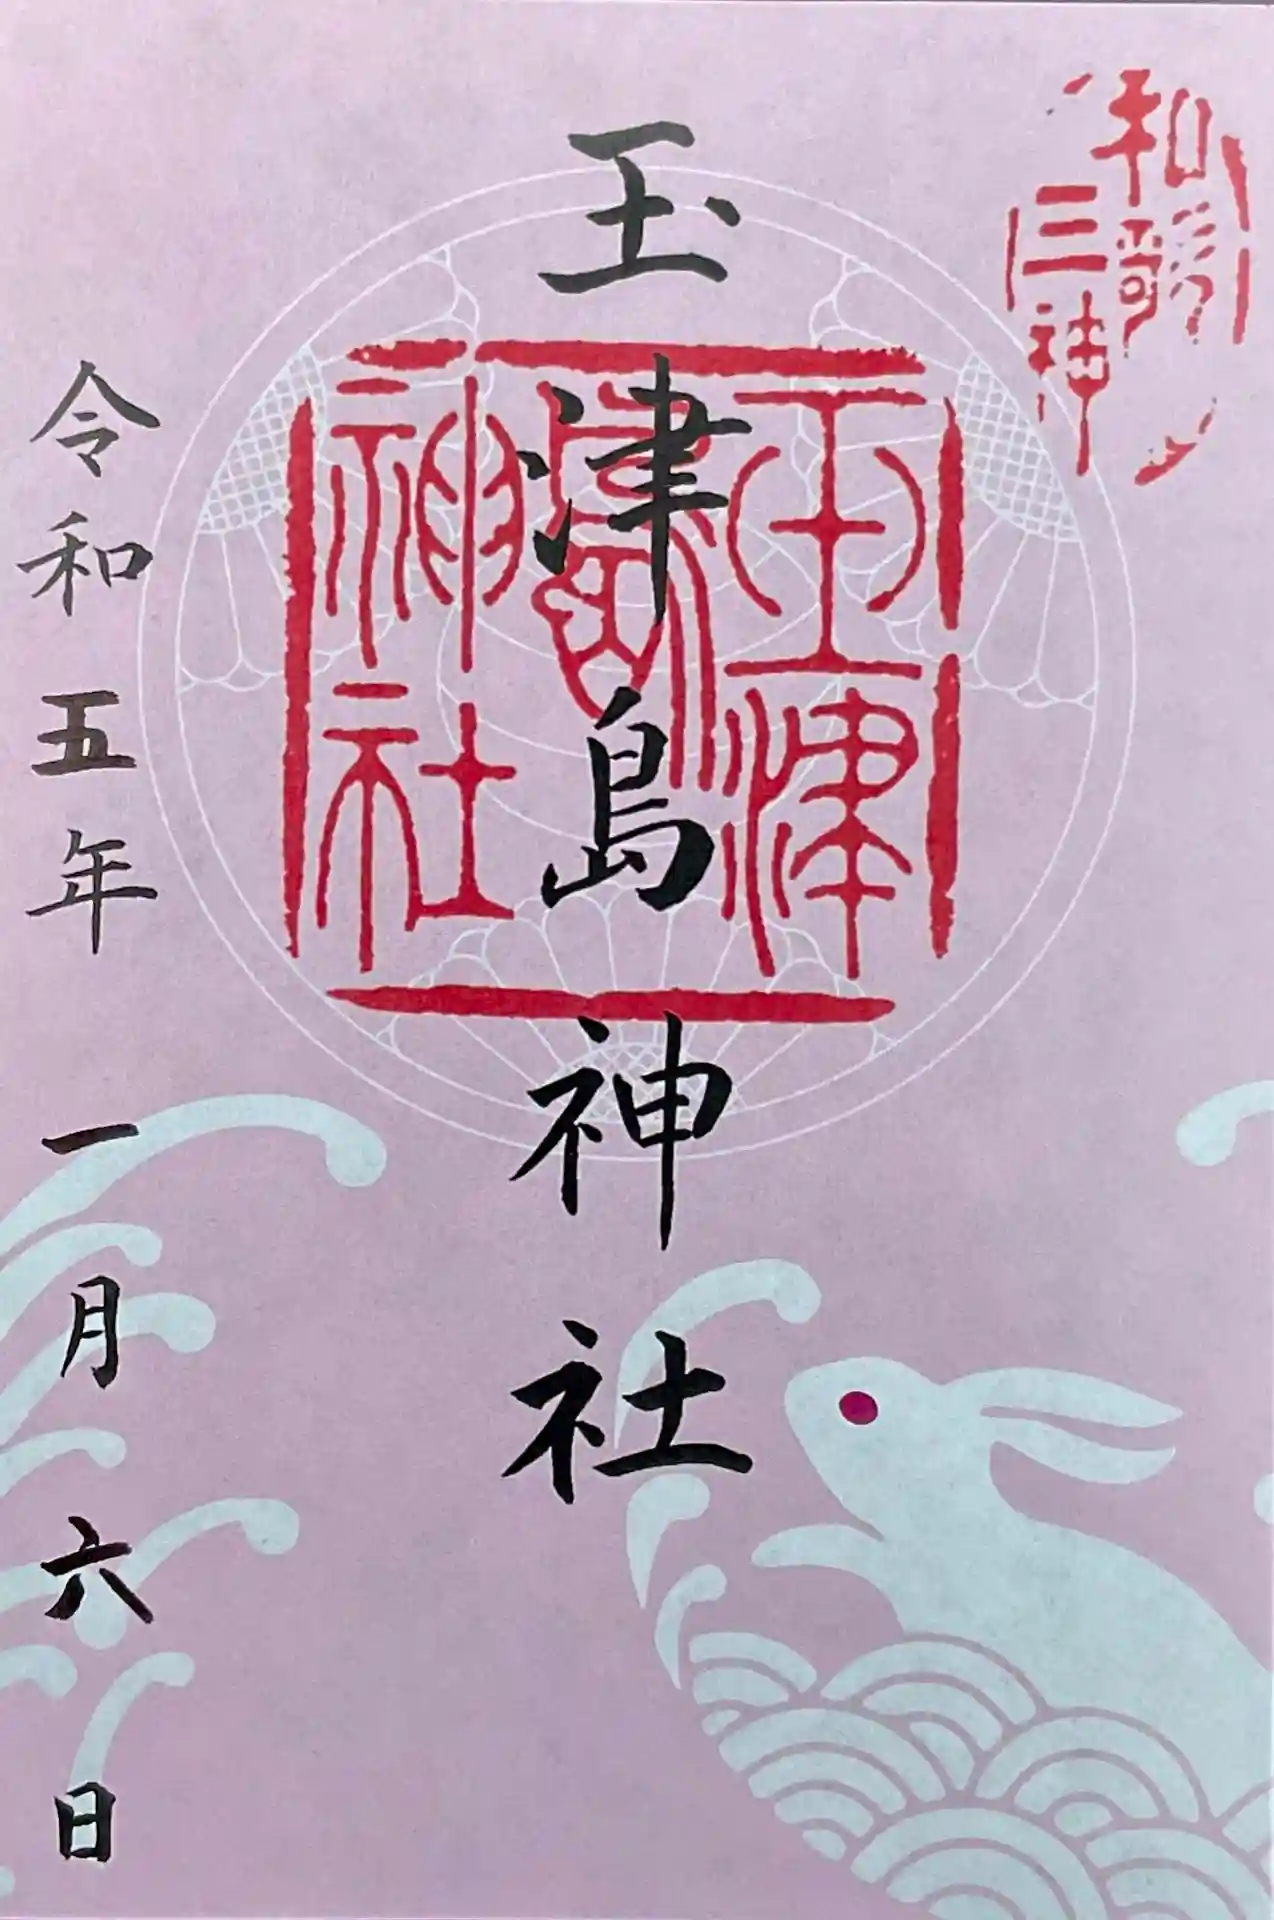 和歌
三神
玉津島神社
玉津
島
神社
令和五年一月六日